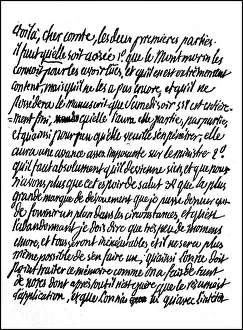 Voilà, cher comte, les deux premières parties.
il faut qu'elle soit avisée 1º. que le Montmorin les
connoit pour les avoir lües, et qu'il en est extrêmement
content, mais qu'il ne les a pas encore, et qu'il ne
possédera le manuscrit que samedi soir s'il est entière-
ment fini, qu'elle l'aura partie par partie,
et qu'ainsi pour peu qu'elle veuille s'en pénétrer, elle
aura une avance assez importante sur le ministre 2º.
qu'il faut absolument qu'il devienne sien, et que nous
n'avons plus que cet espoir de salut 3º que la plus
grande marque de dévouement que je puisse donner
de fournir un plan dans les circonstances, et qu'en
l'abandonnant je dois dire que très peu de momens
encore, et tous seront inexécutables et il ne sera plus
même possible de s'en faire un; qu'ainsi l'on ne doit
point traiter ce mémoire comme on a fait de tant
de notes dont après tout il n'est guère que le
d'application, et que l'on n'a qu'avec l'intérêt